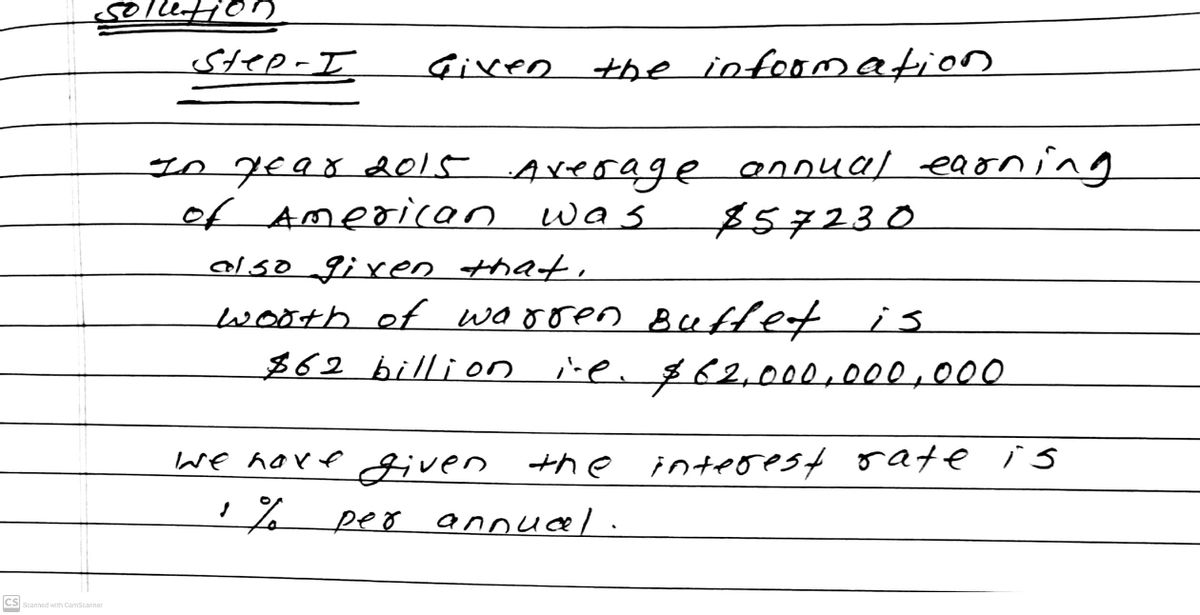 Solution
Step-I Given the information
In year 2015 Average annual earning
of American was $57230
also given that,
worth of warren Buffet is
$62 billion i.e. $62,000,000,000
we have given the interest rate is
1% per annual.
CS Scanned with CamScanner